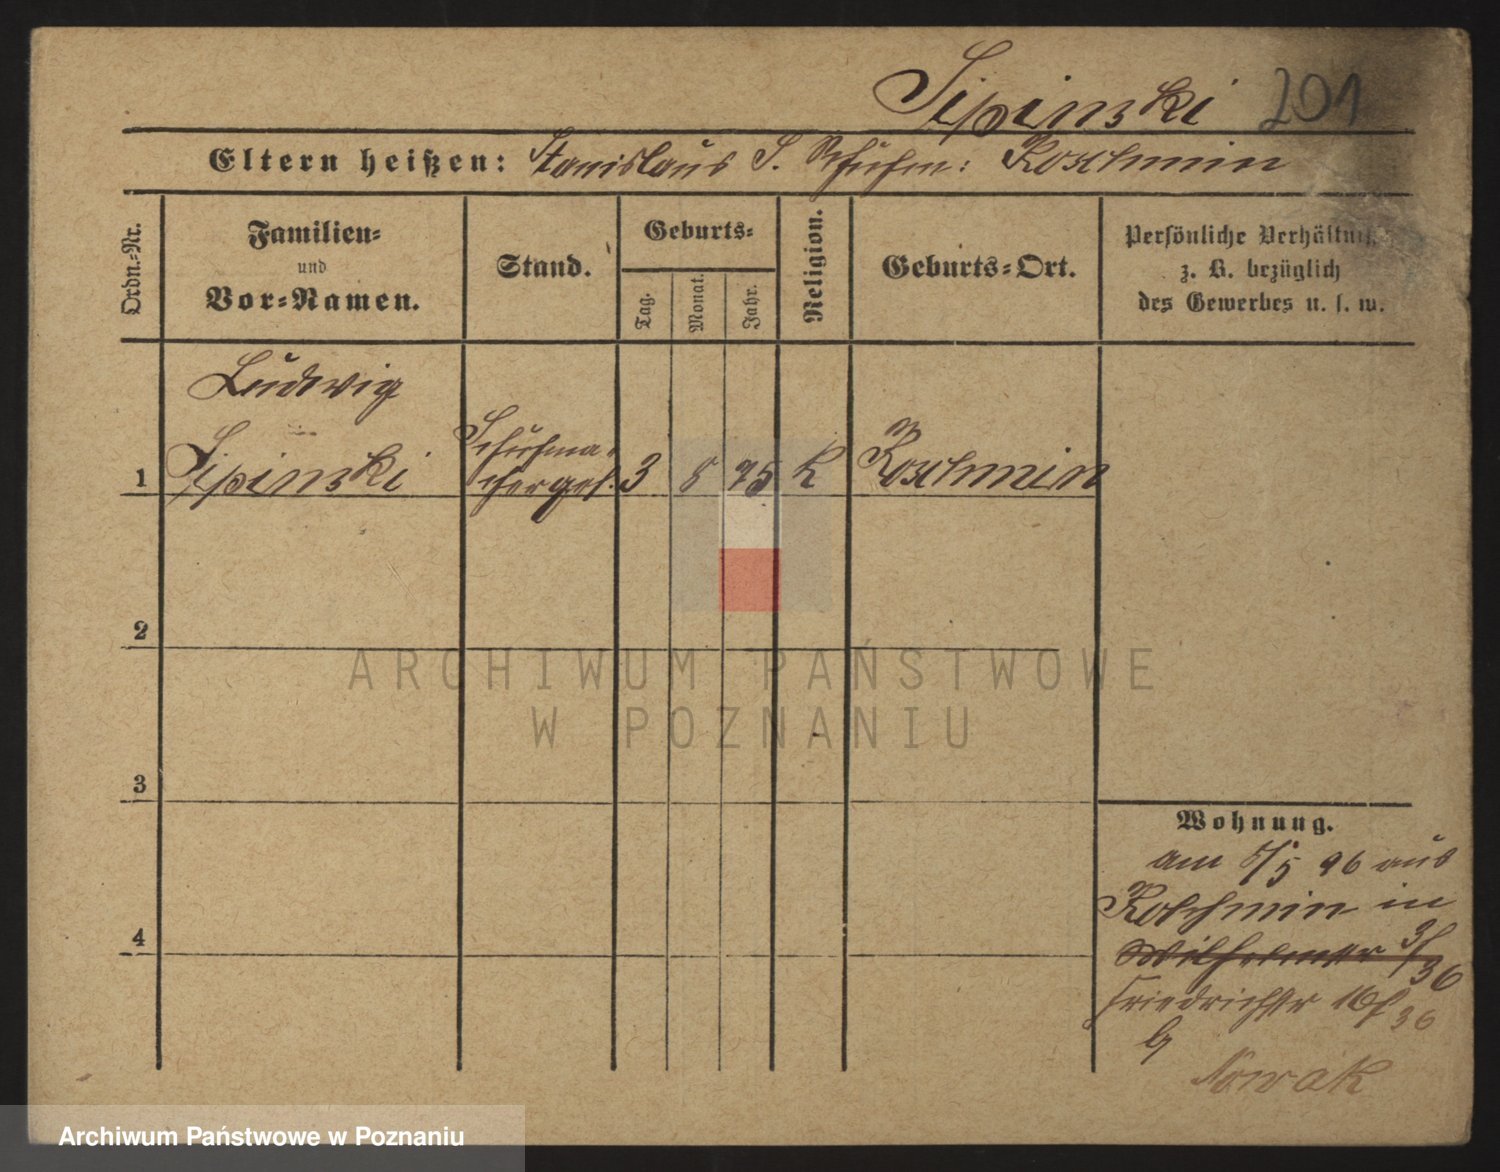 Sipinski 201
Eltern heißen: Stanislaus S. Schuhm: Koschmin
Ordn.-Nr.
Familien-
und
Vor-Namen.
Stand.
Geburts-
Tag.
Monat.
Jahr.
Religion.
Geburts-Ort.
Persönliche Verhältnisse
z. B. bezüglich
des Gewerbes u. s. w.
Ludwig
1 Sipinski Schuhma-
cherges. 3 8 75 k Koschmin
2
3
4
ARCHIWUM PAŃSTWOWE
W POZNANIU
Wohnung.
am 5/5 96 aus
Koschmin in
Wilhelmstr
36
Friedrichstr 16/36
b
Nowak
Archiwum Państwowe w Poznaniu